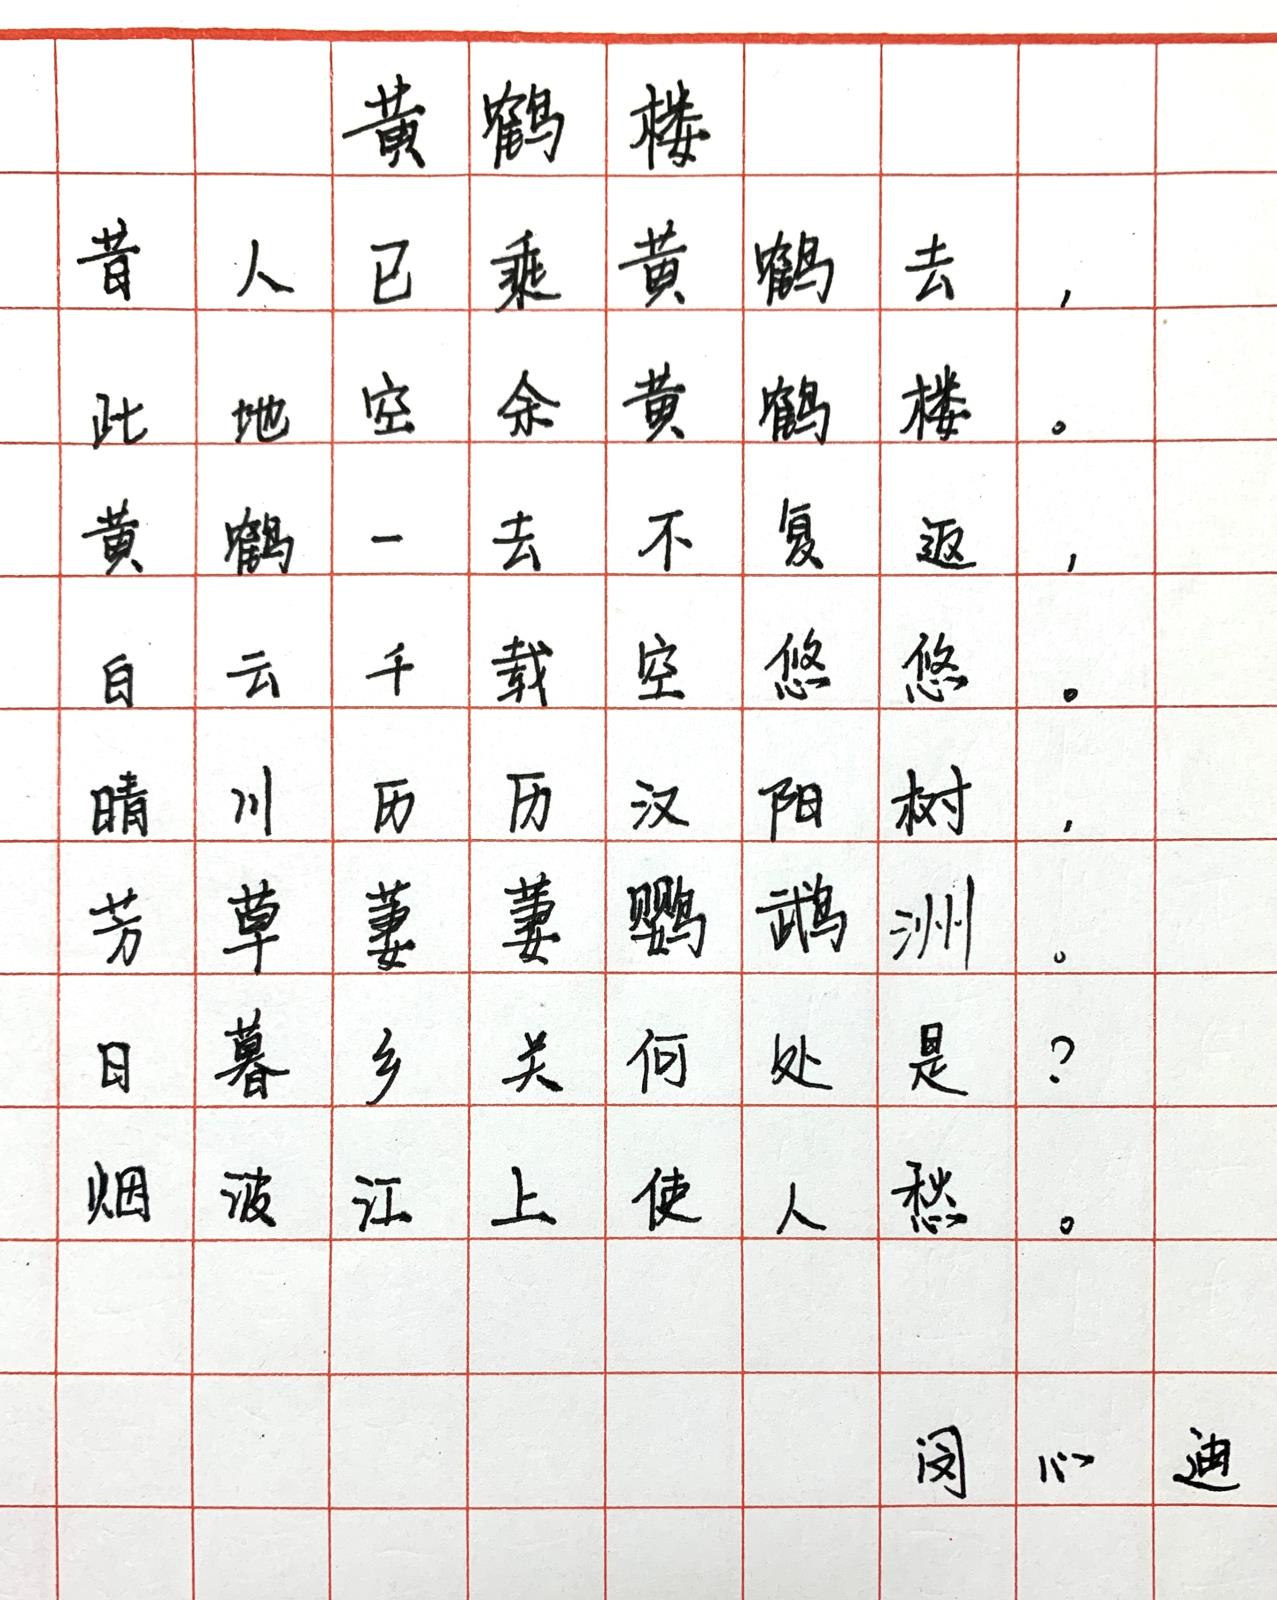 黄鹤楼
昔人已乘黄鹤去，
此地空余黄鹤楼。
黄鹤一去不复返，
白云千载空悠悠。
晴川历历汉阳树，
芳草萋萋鹦鹉洲。
日暮乡关何处是？
烟波江上使人愁。
闵心迪